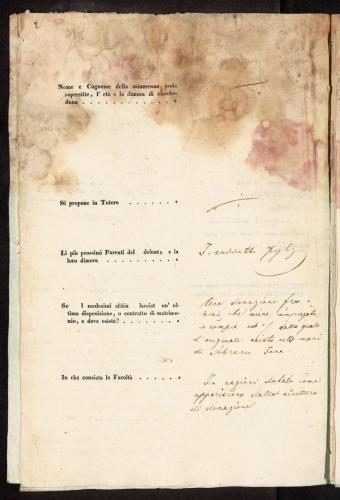 Nome e Cognome della minorenne prole
superstite, l' età e la dimora di ciasche-
duna . . . . . . . . . . . . . .
Si propone in Tutore . . . . . . .
Li più prossimi Parenti del defonto e la
loro dimora . . . . . . . . . . .
I suddetti figli
Se i medesimi abbia lasciat un' ul-
tima disposizione, o contratto di matrimo-
nio, e dove esista? . . . . . . . .
Una donazione
che
in copia della quale
l'originale esiste nelle mani
di Abramo
In che consista la Facoltà . . . . . .
In ragioni dotali come
appariscono dalla scrittura
di donazione